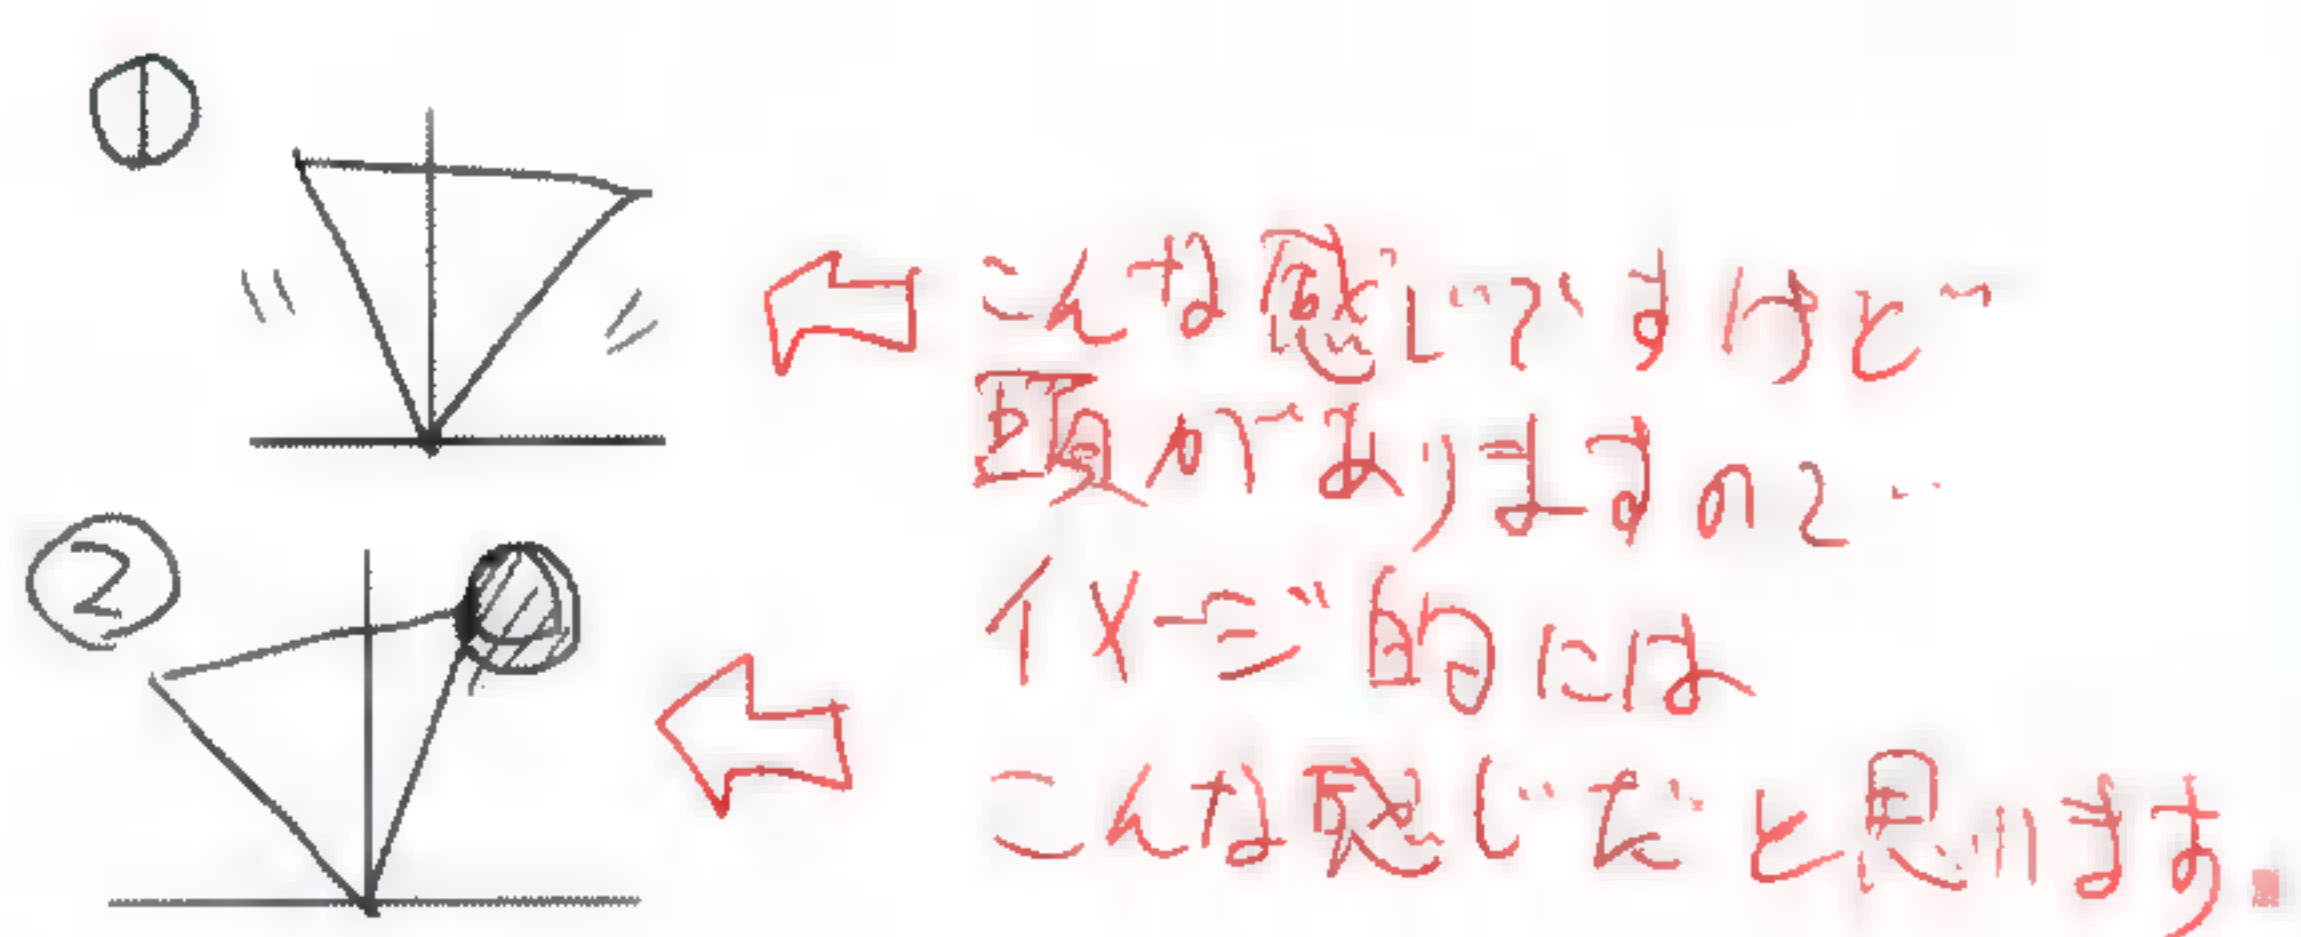 ①
こんな感じですけど
頭がありますので
②
イメージ的には
こんな感じだと思います.